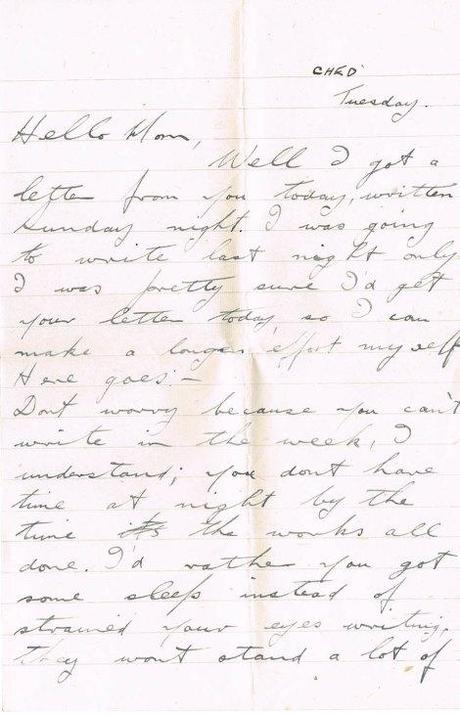 CHED
Tuesday.
Hello Mom,
Well I got a
letter from you today, written
Sunday night. I was going
to write last night only
I was pretty sure I'd get
your letter today so I can
make a longer effort myself
Here goes:-
Dont worry because you can't
write in the week, I
understand; you dont have
time at night by the
time its the works all
done. I'd rather you got
some sleep instead of
strained your eyes writing.
They wont stand a lot of